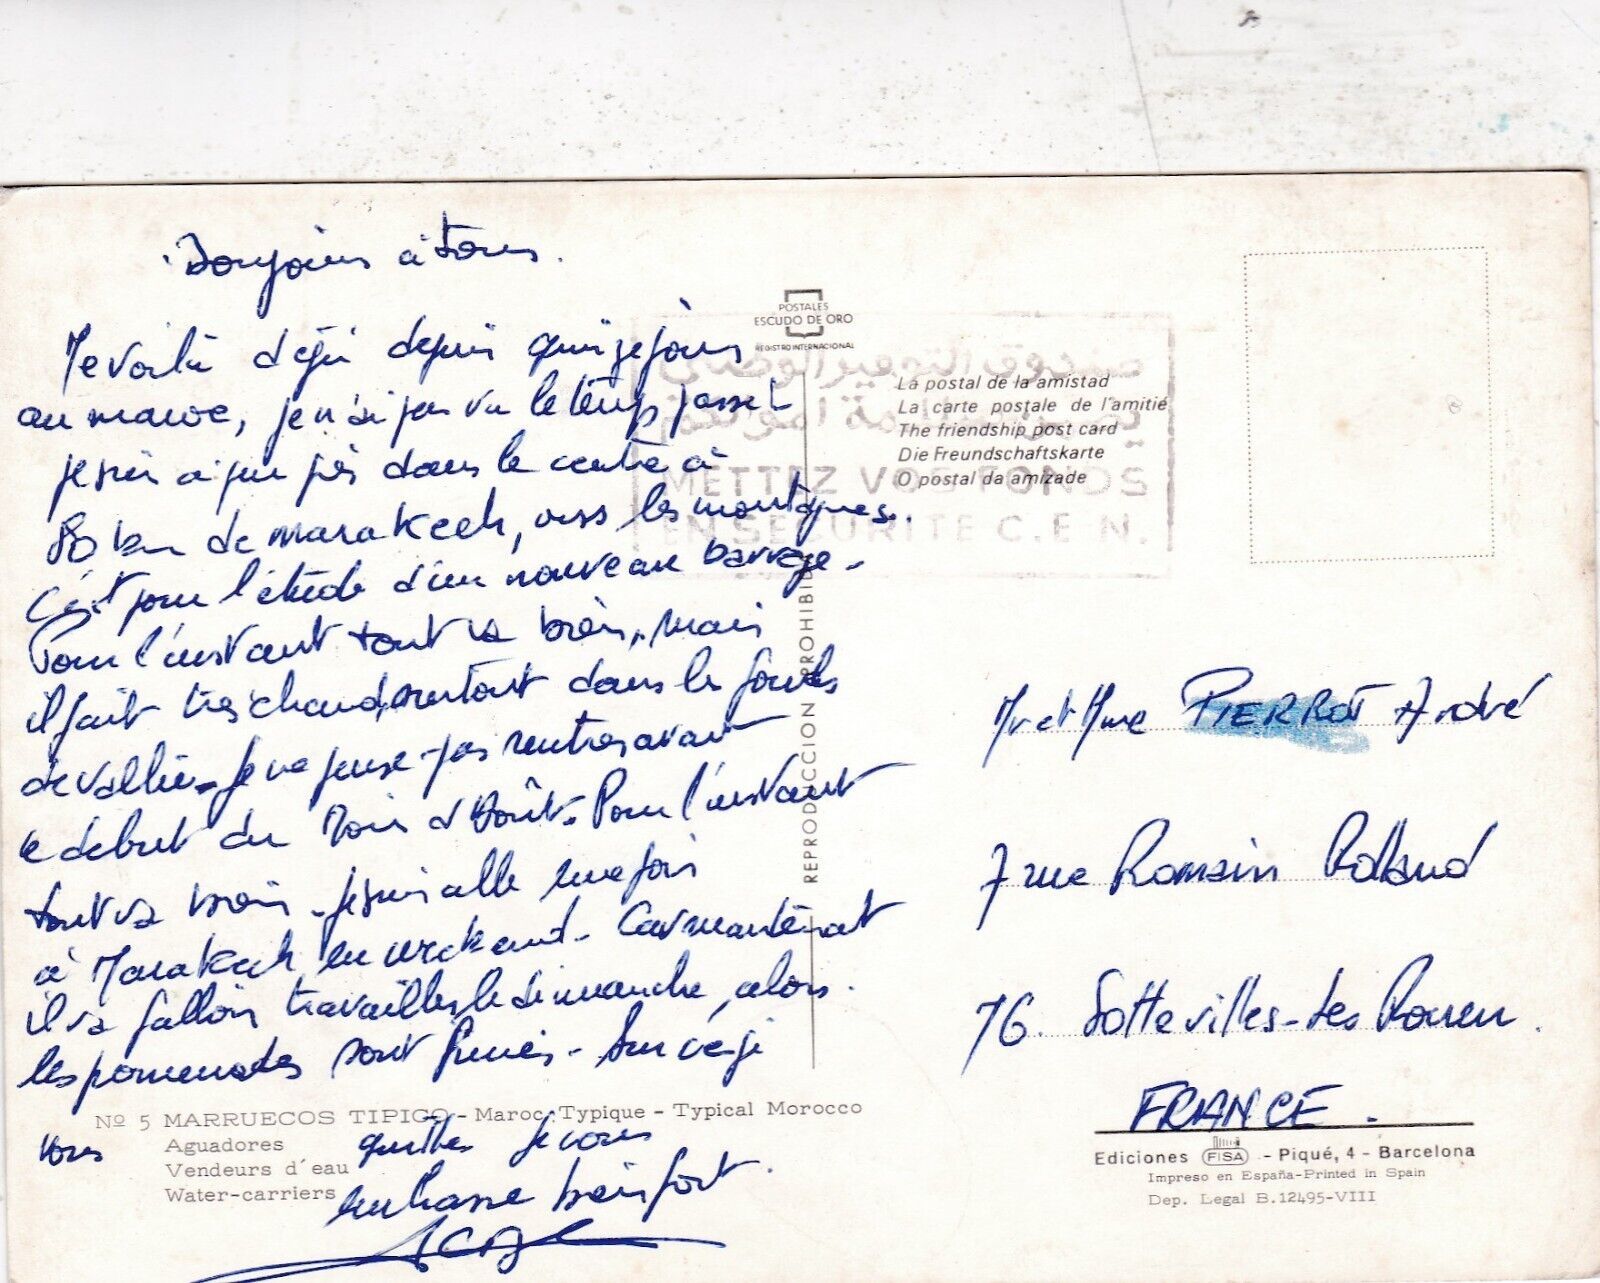 Bonjour à tous.
Me voilà déjà depuis quinze jours
au maroc, je n'ai pas vu le temps passer
je suis à peu près dans le centre à
80 km de marakech, vers les montagnes.
C'est pour l'étude d'un nouveau barrage.
Pour l'instant tout va bien, mais
il fait très chaud, surtout dans les fonds
de vallée. Je ne pense pas rentrer avant
le début du Mois d'Août. Pour l'instant
tout va bien. Je suis allé une fois
à Marakech en weekend. Car maintenant
il va falloir travailler le dimanche, alors.
les promenades sont finies. Sur ce je
vous quitte je vous
embrasse bien fort.
POSTALES
ESCUDO DE ORO
REGISTRO INTERNACIONAL
صندوق التوفير الوطني
METTEZ VOS FONDS
EN SECURITE C.E.N.
La postal de la amistad
La carte postale de l'amitié
The friendship post card
Die Freundschaftskarte
O postal da amizade
REPRODUCCION PROHIBIDA
Mr et Mme PIERROT André
7 rue Romain Rolland
76. Sotteville-Les Rouen.
FRANCE.
Nº 5 MARRUECOS TIPICO - Maroc Typique - Typical Morocco
Aguadores
Vendeurs d'eau
Water-carriers
Ediciones FISA - Piqué, 4 - Barcelona
Impreso en España-Printed in Spain
Dep. Legal B.12495-VIII